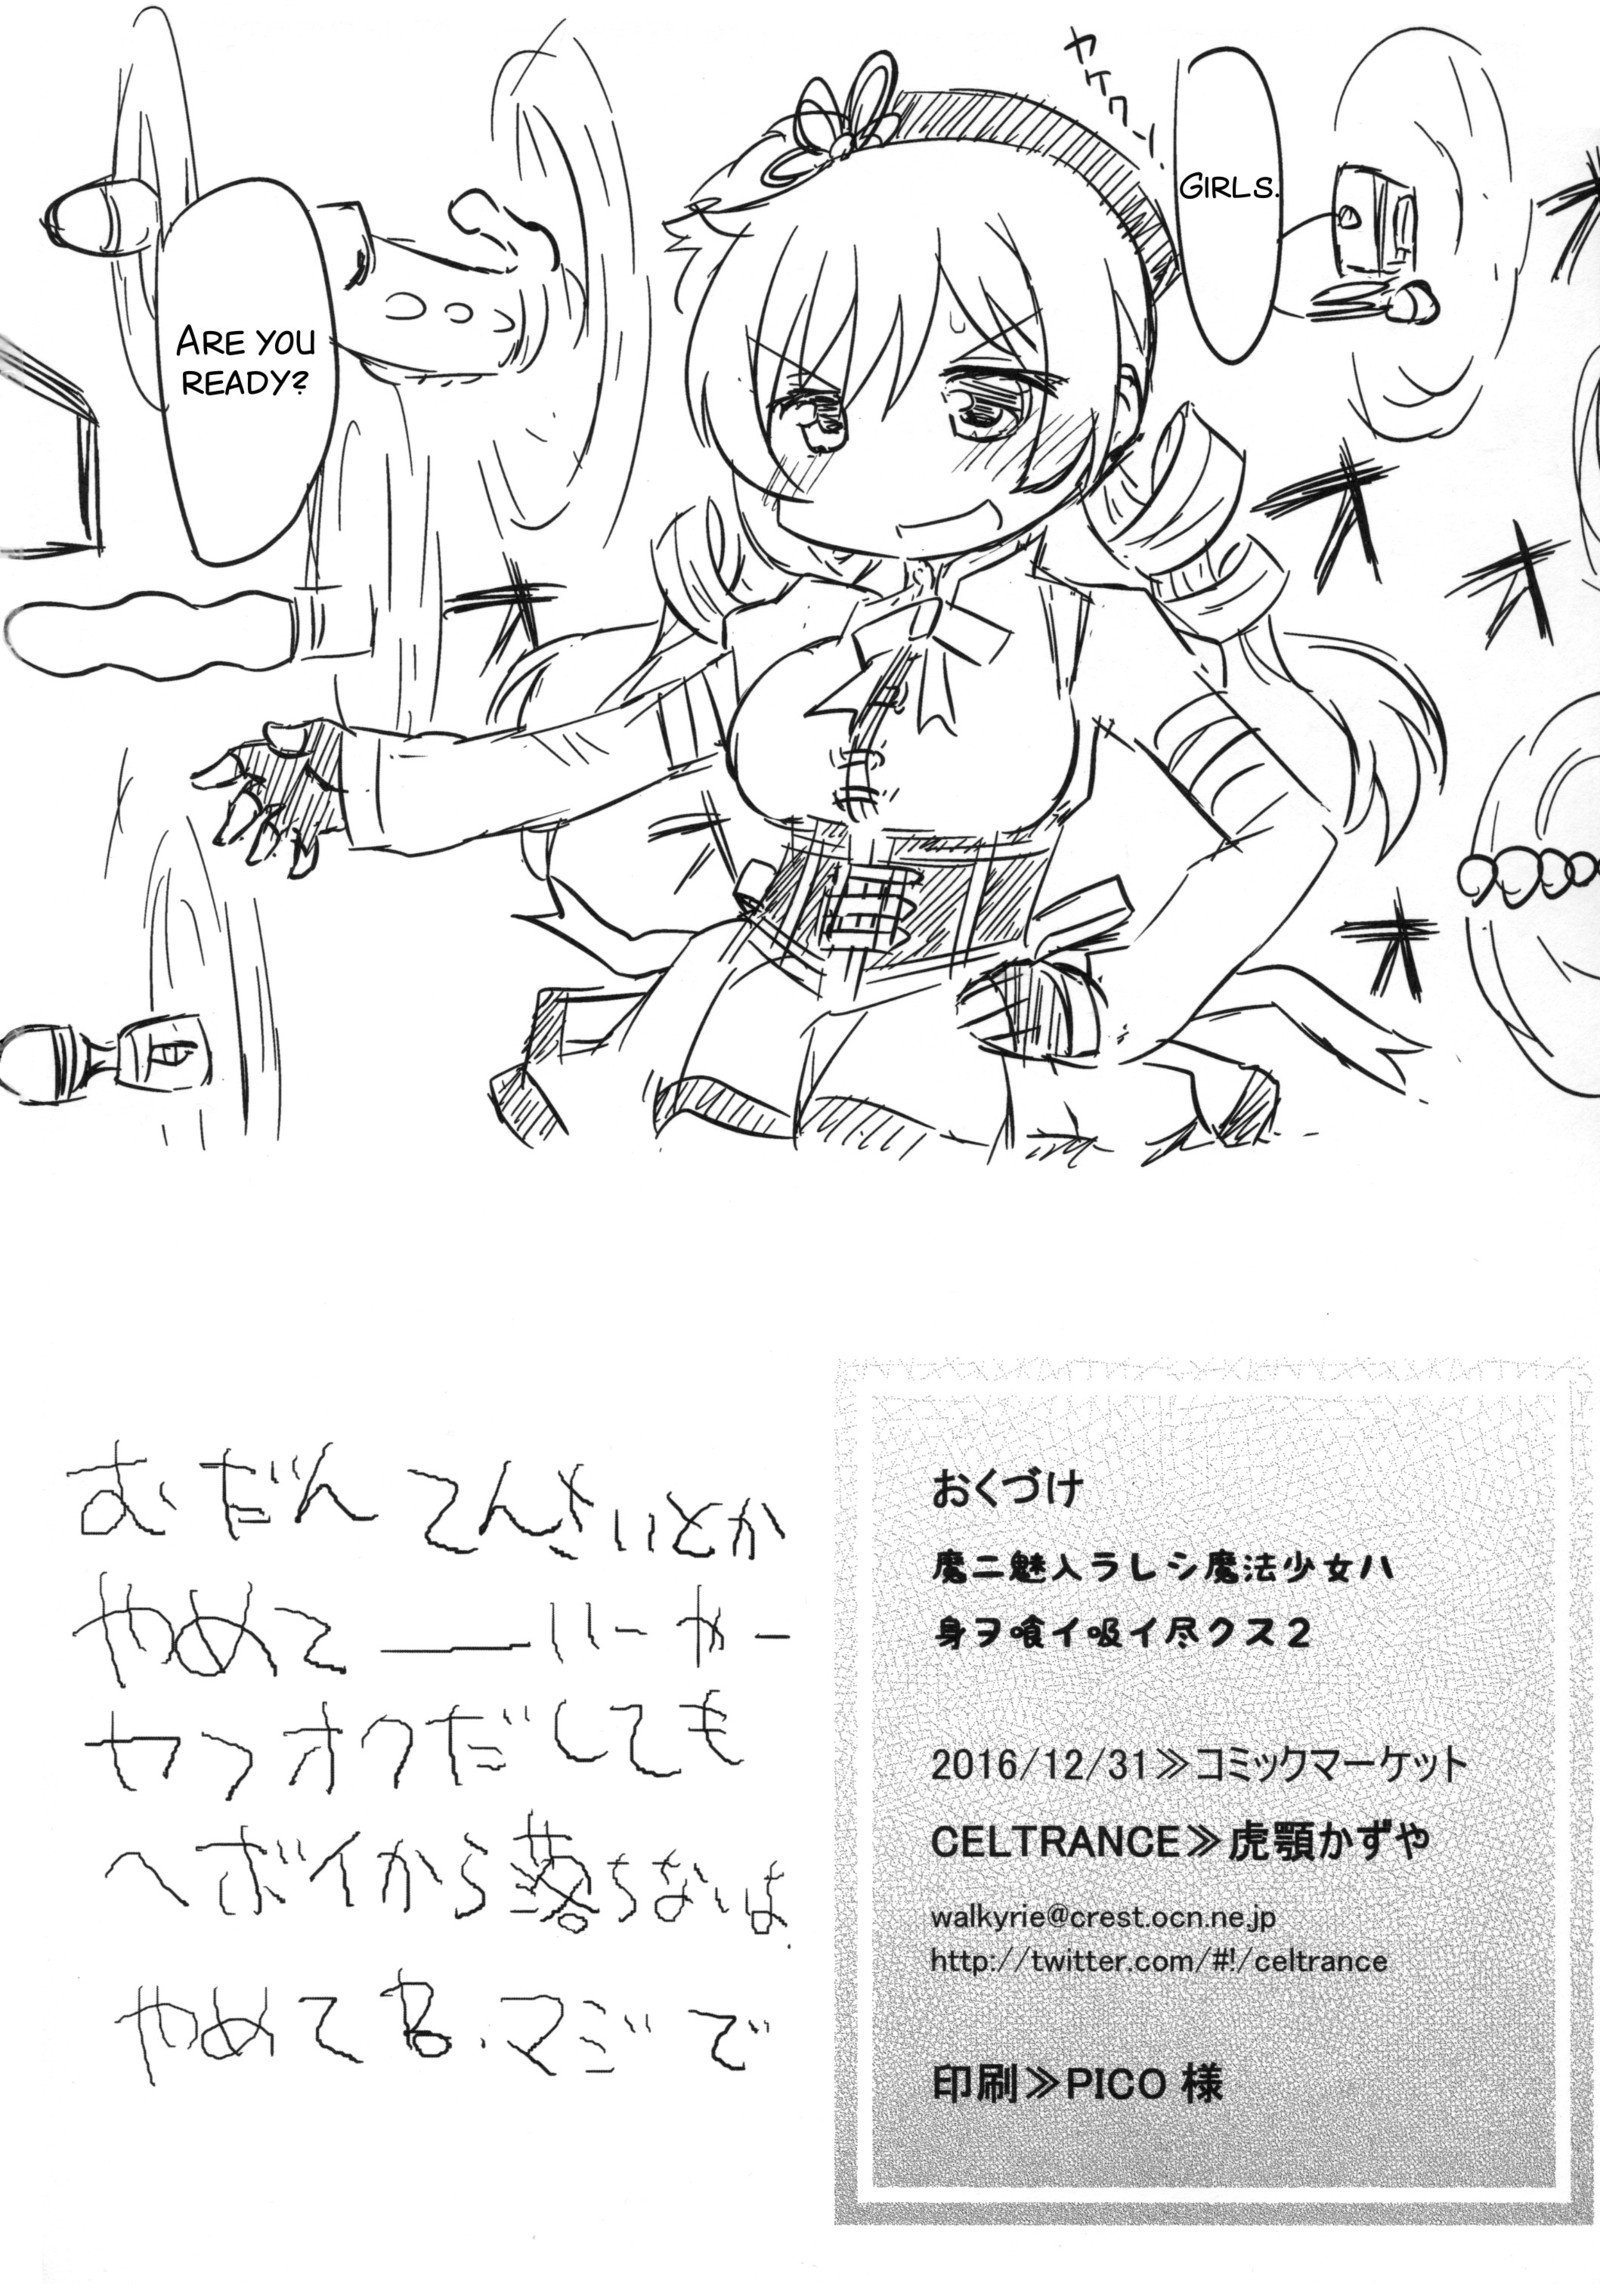 ヤケクソー!
GIRLS.
ARE YOU
READY?
むだんてんさいとか
やめて――いーやー
ヤフオクだしても
ヘボイから落ちないは
やめてね.マジで
おくづけ
魔ニ魅入ラレシ魔法少女ハ
身ヲ喰イ吸イ尽クス2
2016/12/31≫コミックマーケット
CELTRANCE≫虎顎かずや
walkyrie@crest.ocn.ne.jp
http://twitter.com/#!/celtrance
印刷≫PICO 様